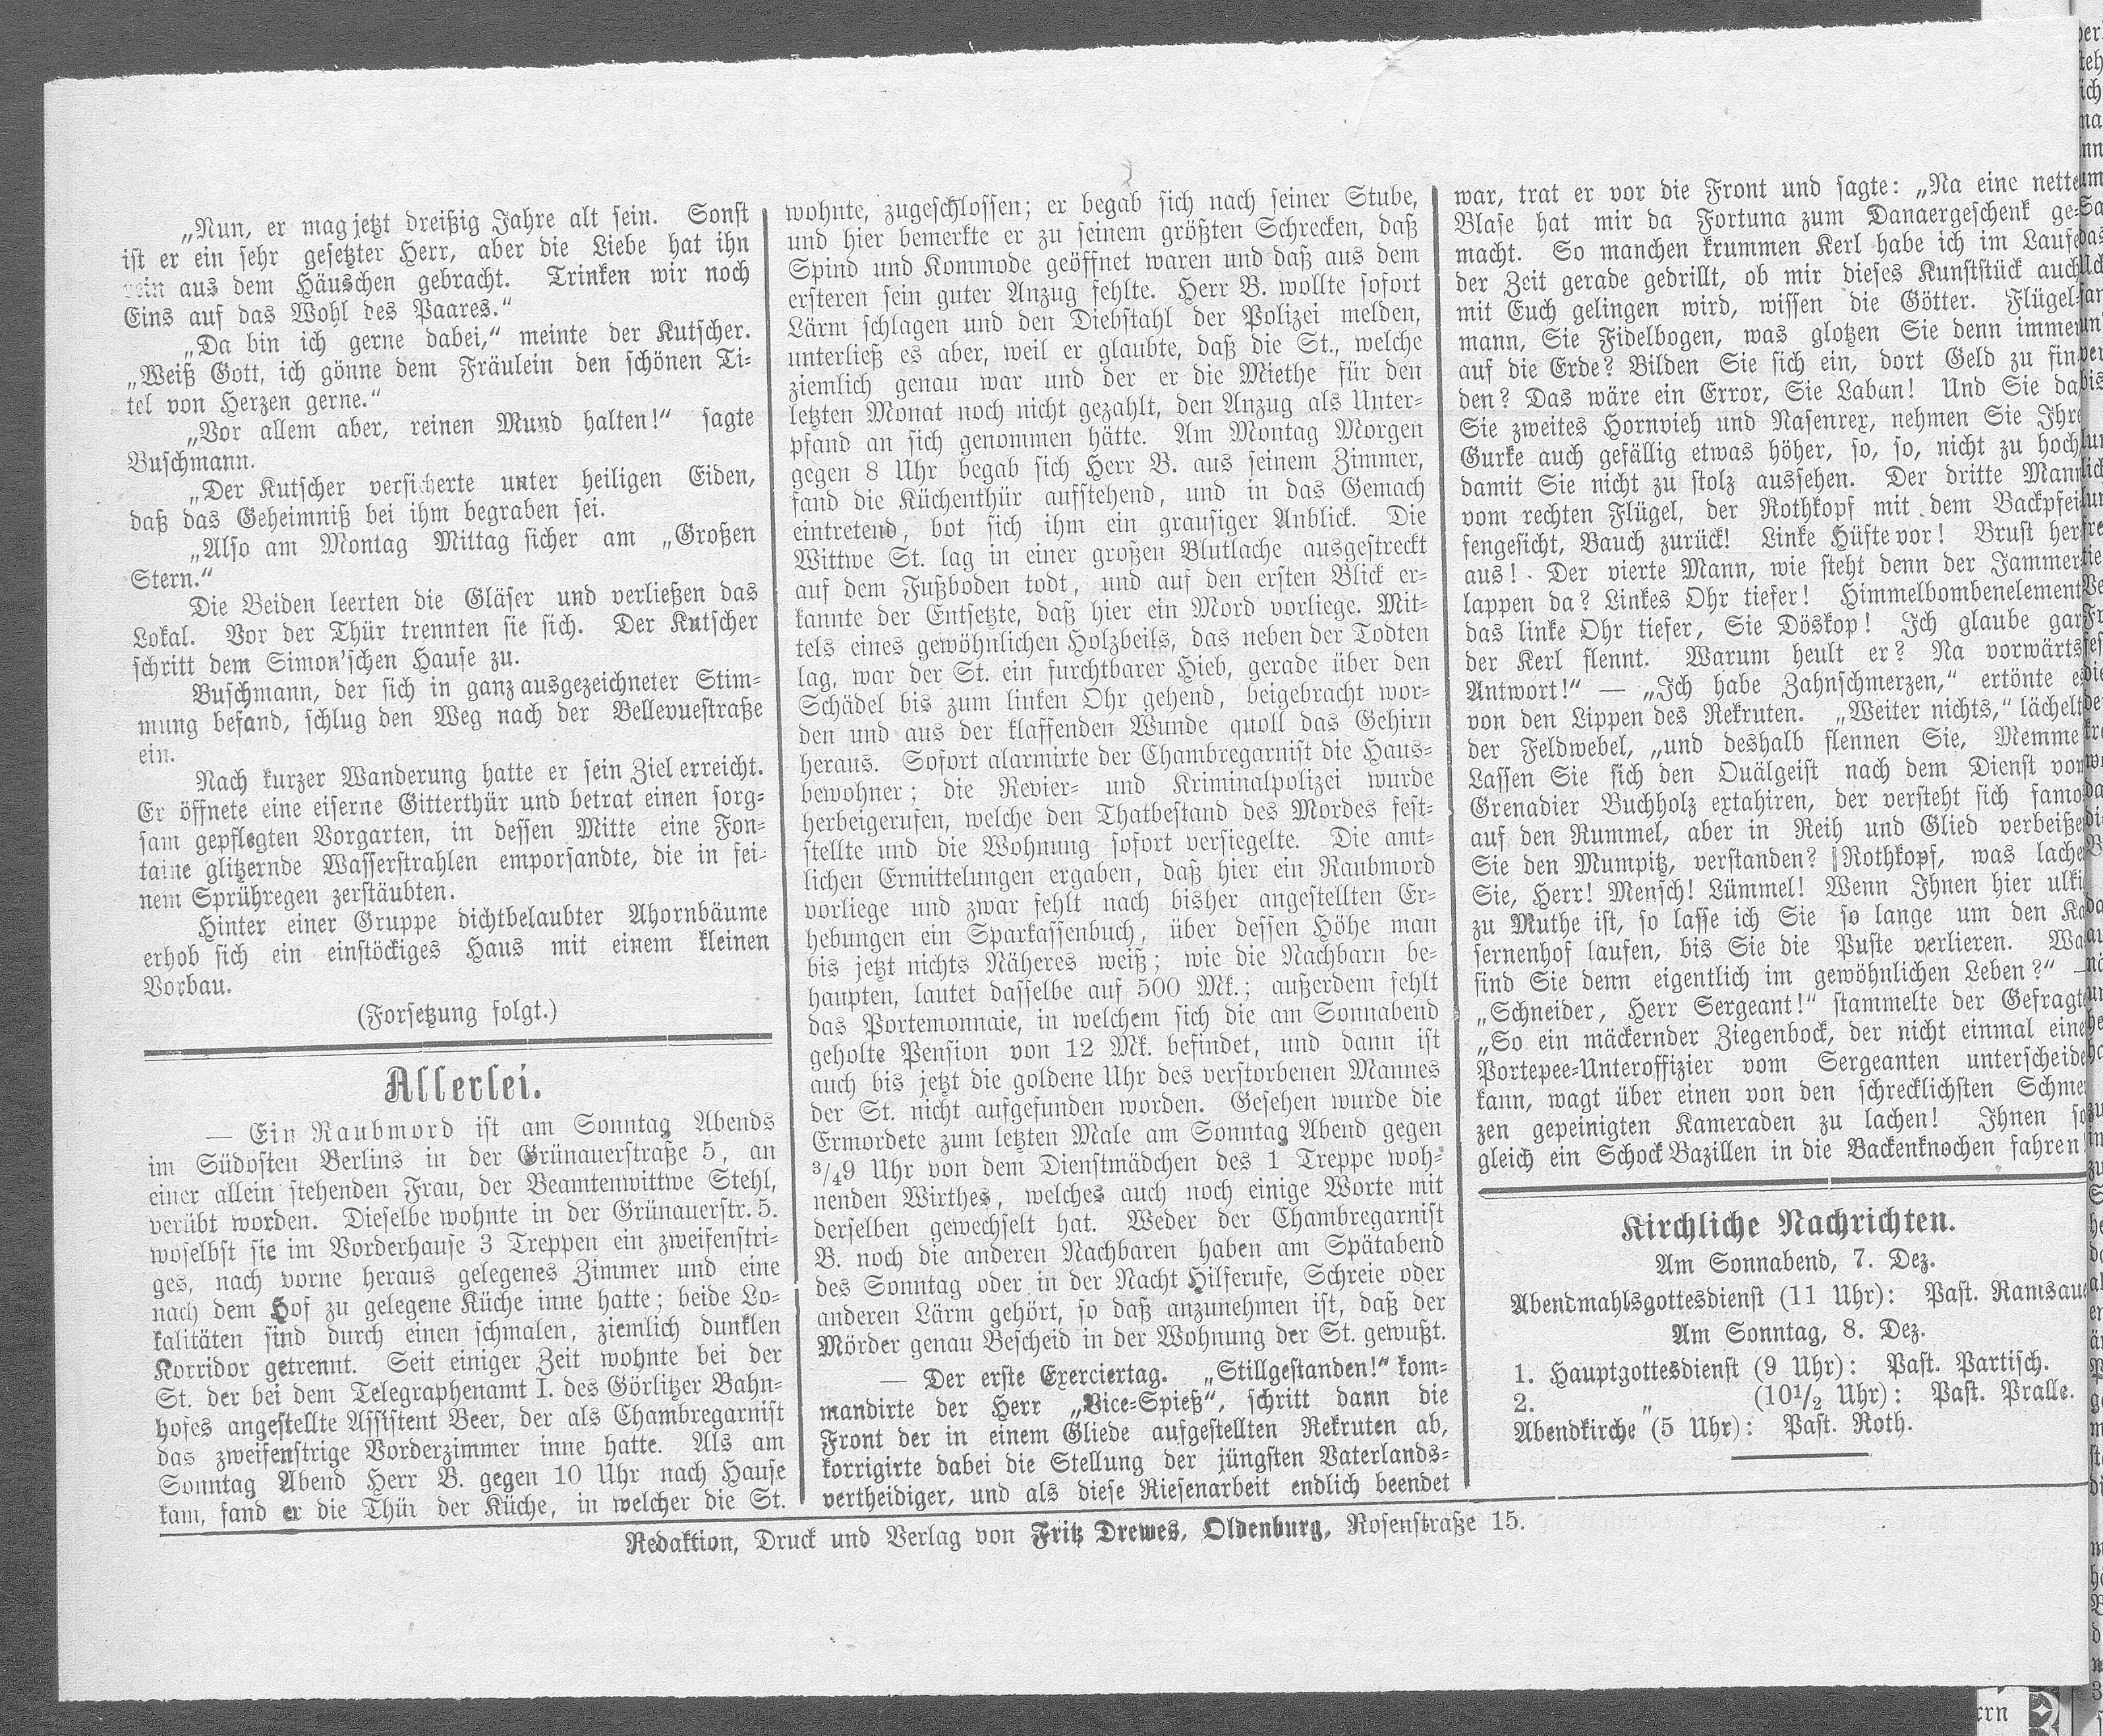 „Nun, er mag jetzt dreißig Jahre alt sein. Sonst
ist er ein sehr gesetzter Herr, aber die Liebe hat ihn
rein aus dem Häuschen gebracht. Trinken wir noch
Eins auf das Wohl des Paares.“
„Da bin ich gerne dabei,“ meinte der Kutscher.
„Weiß Gott, ich gönne dem Fräulein den schönen Ti-
tel von Herzen gerne.“
„Vor allem aber, reinen Mund halten!“ sagte
Buschmann.
„Der Kutscher versicherte unter heiligen Eiden,
daß das Geheimniß bei ihm begraben sei.
„Also am Montag Mittag sicher am „Großen
Stern.“
Die Beiden leerten die Gläser und verließen das
Lokal. Vor der Thür trennten sie sich. Der Kutscher
schritt dem Simon'schen Hause zu.
Buschmann, der sich in ganz ausgezeichneter Stim-
mung befand, schlug den Weg nach der Bellevuestraße
ein.
Nach kurzer Wanderung hatte er sein Ziel erreicht.
Er öffnete eine eiserne Gitterthür und betrat einen sorg-
sam gepflegten Vorgarten, in dessen Mitte eine Fon-
taine glitzernde Wasserstrahlen emporsandte, die in fei-
nem Sprühregen zerstäubten.
Hinter einer Gruppe dichtbelaubter Ahornbäume
erhob sich ein einstöckiges Haus mit einem kleinen
Vorbau.
(Forsetzung folgt.)
Allerlei.
— Ein Raubmord ist am Sonntag Abends
im Südosten Berlins in der Grünauerstraße 5, an
einer allein stehenden Frau, der Beamtenwittwe Stehl,
verübt worden. Dieselbe wohnte in der Grünauerstr. 5.
woselbst sie im Vorderhause 3 Treppen ein zweifenstri-
ges, nach vorne heraus gelegenes Zimmer und eine
nach dem Hof zu gelegene Küche inne hatte; beide Lo-
kalitäten sind durch einen schmalen, ziemlich dunklen
Korridor getrennt. Seit einiger Zeit wohnte bei der
St. der bei dem Telegraphenamt I. des Görlitzer Bahn-
hofes angestellte Assistent Beer, der als Chambregarnist
das zweifenstrige Vorderzimmer inne hatte. Als am
Sonntag Abend Herr B. gegen 10 Uhr nach Hause
kam, fand er die Thür der Küche, in welcher die St.
wohnte, zugeschlossen; er begab sich nach seiner Stube,
und hier bemerkte er zu seinem größten Schrecken, daß
Spind und Kommode geöffnet waren und daß aus dem
ersteren sein guter Anzug fehlte. Herr B. wollte sofort
Lärm schlagen und den Diebstahl der Polizei melden,
unterließ es aber, weil er glaubte, daß die St., welche
ziemlich genau war und der er die Miethe für den
letzten Monat noch nicht gezahlt, den Anzug als Unter-
pfand an sich genommen hätte. Am Montag Morgen
gegen 8 Uhr begab sich Herr B. aus seinem Zimmer,
fand die Küchenthür aufstehend, und in das Gemach
eintretend, bot sich ihm ein grausiger Anblick. Die
Wittwe St. lag in einer großen Blutlache ausgestreckt
auf dem Fußboden todt, und auf den ersten Blick er-
kannte der Entsetzte, daß hier ein Mord vorliege. Mit-
tels eines gewöhnlichen Holzbeils, das neben der Todten
lag, war der St. ein furchtbarer Hieb, gerade über den
Schädel bis zum linken Ohr gehend, beigebracht wor-
den und aus der klaffenden Wunde quoll das Gehirn
heraus. Sofort alarmirte der Chambregarnist die Haus-
bewohner; die Revier- und Kriminalpolizei wurde
herbeigerufen, welche den Thatbestand des Mordes fest-
stellte und die Wohnung sofort versiegelte. Die amt-
lichen Ermittelungen ergaben, daß hier ein Raubmord
vorliege und zwar fehlt nach bisher angestellten Er-
hebungen ein Sparkassenbuch, über dessen Höhe man
bis jetzt nichts Näheres weiß; wie die Nachbarn be-
haupten, lautet dasselbe auf 500 Mk.; außerdem fehlt
das Portemonnaie, in welchem sich die am Sonnabend
geholte Pension von 12 Mk. befindet, und dann ist
auch bis jetzt die goldene Uhr des verstorbenen Mannes
der St. nicht aufgefunden worden. Gesehen wurde die
Ermordete zum letzten Male am Sonntag Abend gegen
3/49 Uhr von dem Dienstmädchen des 1 Treppe woh-
nenden Wirthes, welches auch noch einige Worte mit
derselben gewechselt hat. Weder der Chambregarnist
B. noch die anderen Nachbaren haben am Spätabend
des Sonntag oder in der Nacht Hilferufe, Schreie oder
anderen Lärm gehört, so daß anzunehmen ist, daß der
Mörder genau Bescheid in der Wohnung der St. gewußt.
— Der erste Exerciertag. „Stillgestanden!“ kom-
mandirte der Herr „Vice-Spieß“, schritt dann die
Front der in einem Gliede aufgestellten Rekruten ab,
korrigirte dabei die Stellung der jüngsten Vaterlands-
vertheidiger, und als diese Riesenarbeit endlich beendet
war, trat er vor die Front und sagte: „Na eine nette
Blase hat mir da Fortuna zum Danaergeschenk ge-
macht. So manchen krummen Kerl habe ich im Laufe
der Zeit gerade gedrillt, ob mir dieses Kunststück auch
mit Euch gelingen wird, wissen die Götter. Flügel-
mann, Sie Fidelbogen, was glotzen Sie denn immer
auf die Erde? Bilden Sie sich ein, dort Geld zu fin
den? Das wäre ein Error, Sie Laban! Und Sie da
Sie zweites Hornvieh und Nasenrex, nehmen Sie Ihre
Gurke auch gefällig etwas höher, so, so, nicht zu hoch
damit Sie nicht zu stolz aussehen. Der dritte Mann
vom rechten Flügel, der Rothkopf mit dem Backpfei
fengesicht, Bauch zurück! Linke Hüfte vor! Brust her
aus! Der vierte Mann, wie steht denn der Jammer
lappen da? Linkes Ohr tiefer! Himmelbombenelement
das linke Ohr tiefer, Sie Döskop! Ich glaube gar
der Kerl flennt. Warum heult er? Na vorwärts
Antwort!“ — „Ich habe Zahnschmerzen,“ ertönte e
von den Lippen des Rekruten. „Weiter nichts,“ lächelt
der Feldwebel, „und deshalb flennen Sie, Memme
Lassen Sie sich den Quälgeist nach dem Dienst von
Grenadier Buchholz extahiren, der versteht sich famo
auf den Rummel, aber in Reih und Glied verbeiße
Sie den Mumpitz, verstanden? Rothkopf, was lache
Sie, Herr! Mensch! Lümmel! Wenn Ihnen hier ulki
zu Muthe ist, so lasse ich Sie so lange um den Ka
sernenhof laufen, bis Sie die Puste verlieren. Wa
sind Sie denn eigentlich im gewöhnlichen Leben?“ —
„Schneider, Herr Sergeant!“ stammelte der Gefragt
„So ein mäckernder Ziegenbock, der nicht einmal eine
Portepee-Unteroffizier vom Sergeanten unterscheide
kann, wagt über einen von den schrecklichsten Schme
zen gepeinigten Kameraden zu lachen! Ihnen so
gleich ein Schock Bazillen in die Backenknochen fahren!
Kirchliche Nachrichten.
Am Sonnabend, 7. Dez.
Abendmahlsgottesdienst (11 Uhr): Past. Ramsaue
Am Sonntag, 8. Dez.
1. Hauptgottesdienst (9 Uhr): Past. Partisch.
2. „ (10 1/2 Uhr): Past. Pralle.
Abendkirche (5 Uhr): Past. Roth.
Redaktion, Druck und Verlag von Fritz Drewes, Oldenburg, Rosenstraße 15.